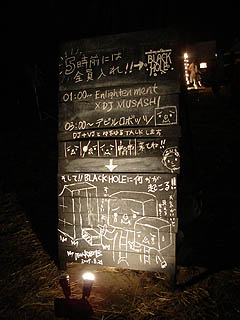 5時前には
全員入れ!!→
BLACK
HOLE
01:00～ Enlightenment
× DJ MUSASHI
03:00～ デビルロボッツ
DJ+VJとゆるゆるTALKします
そして!! BLACKHOLEに何かが
起こる!!